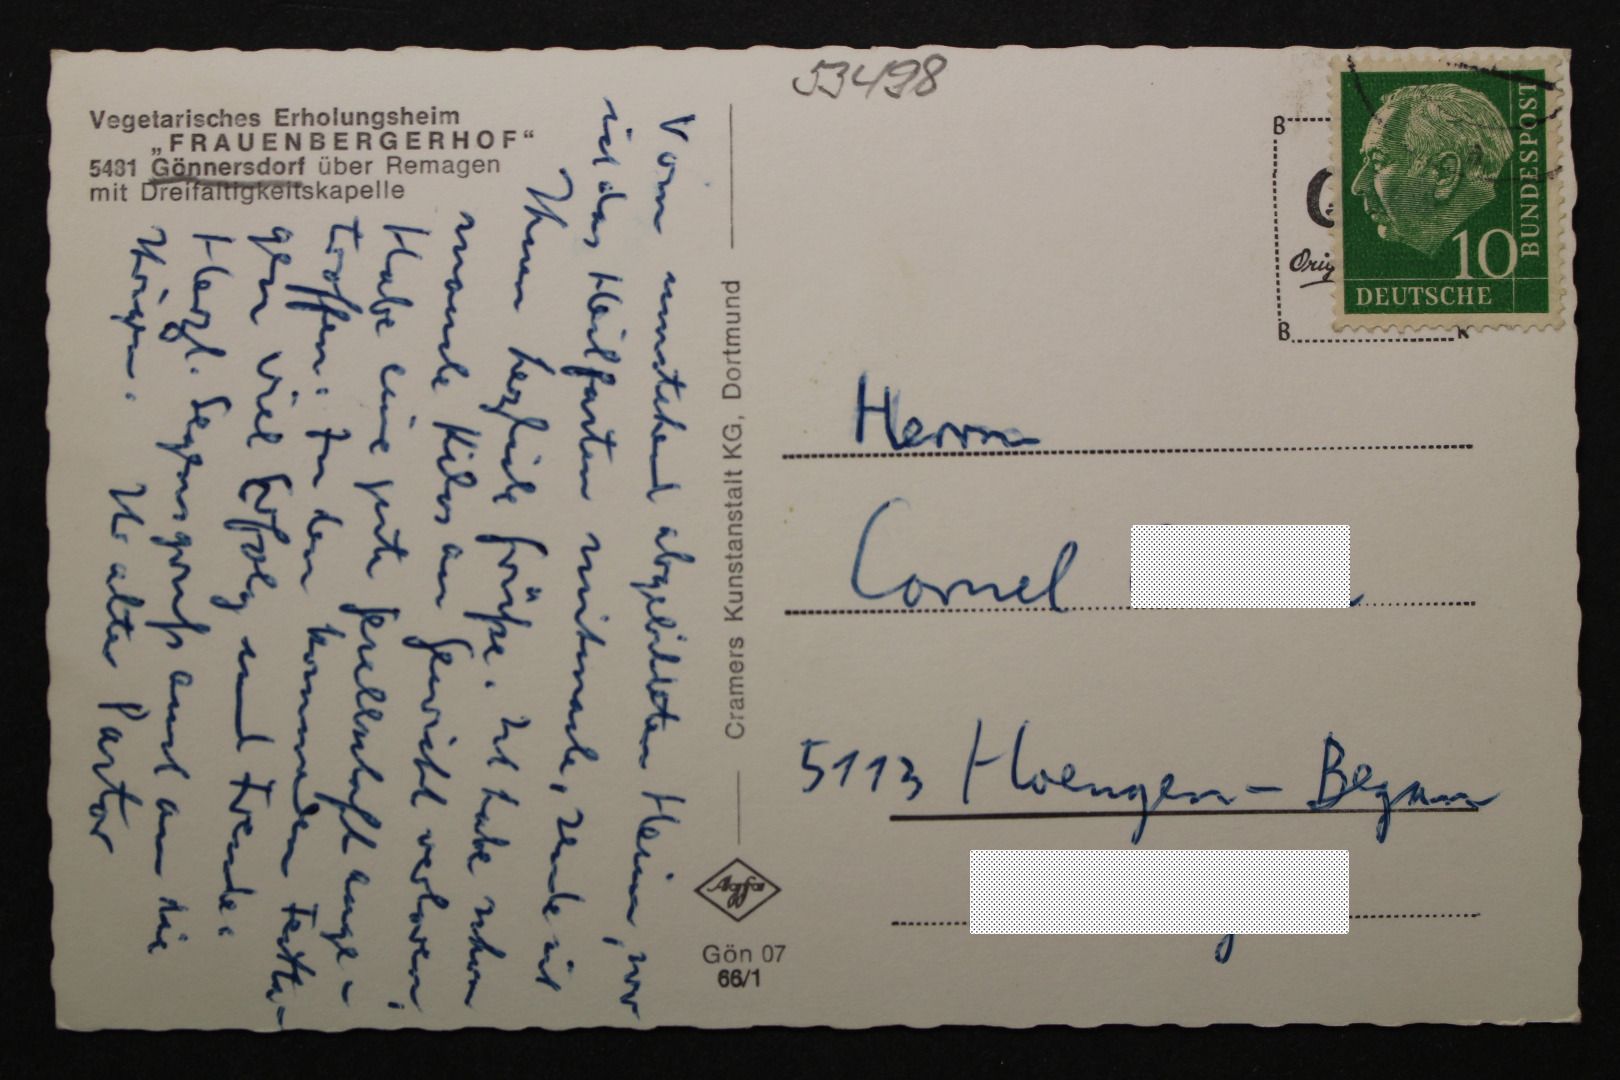 53498
Vegetarisches Erholungsheim
„FRAUENBERGERHOF“
5481 Gönnersdorf über Remagen
mit Dreifaltigkeitskapelle
Vom umstehend abgebildeten Heim, wo
ich das Heilfasten mitmache, sende ich
Ihnen herzliche Grüße. Ich habe schon
manche Kilos an Gewicht verloren.
Habe eine gute Gesellschaft ange-
troffen. Zu den kommenden Festta-
gen viel Erfolg und Freude.
Herzl. Segensgruß auch an die
Ihrigen. Ihr alter Pastor
Cramers Kunstanstalt KG, Dortmund
Agfa
Gön 07
66/1
B
Orig
B
K
DEUTSCHE
BUNDESPOST
10
Herrn
Cornel
5113 Hoengen-